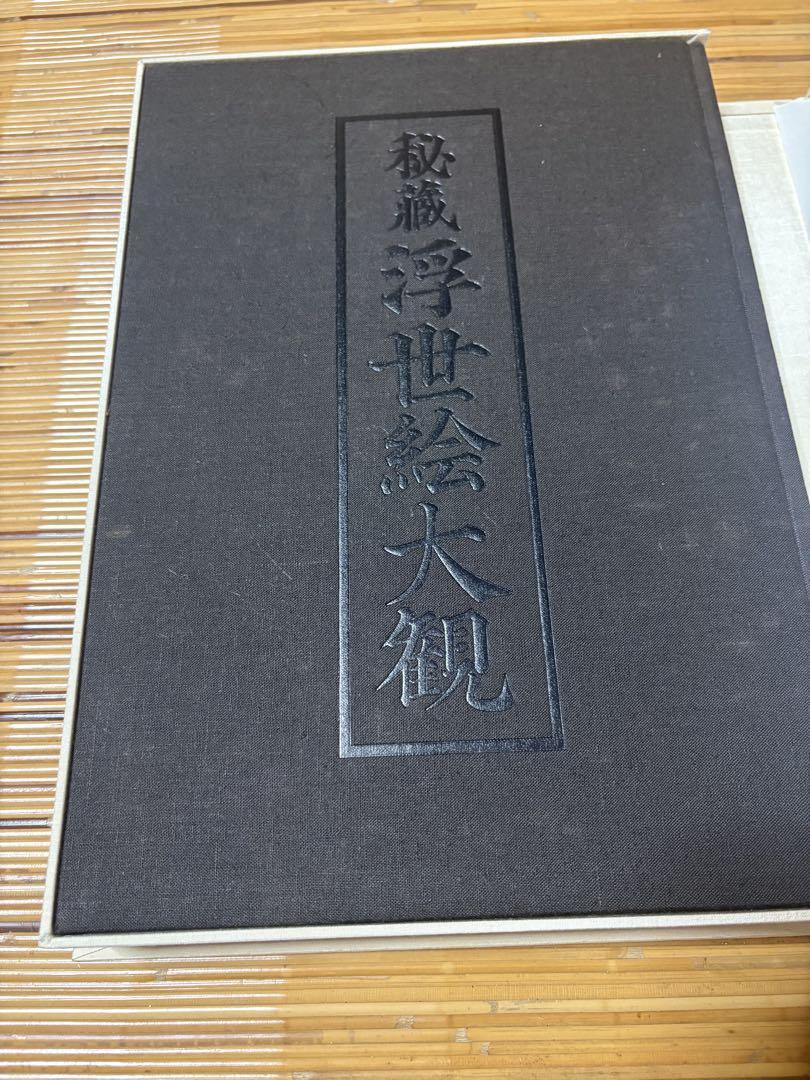 秘蔵浮世絵大観